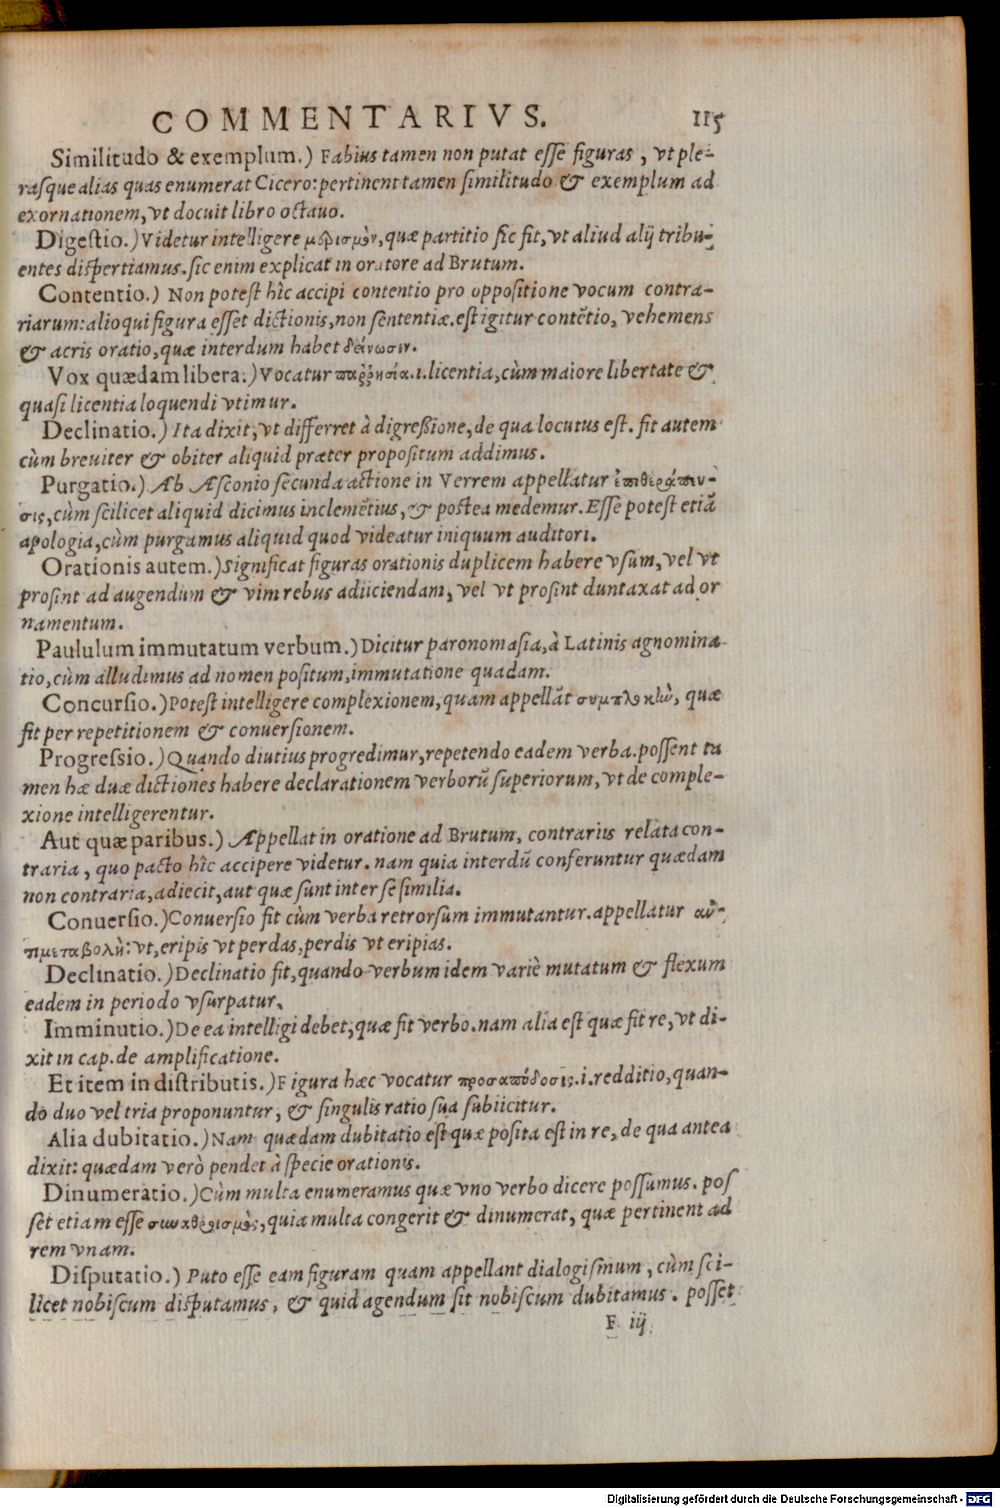 COMMENTARIVS. 115
Similitudo & exemplum.) Fabius tamen non putat esse figuras, vt ple-
rasque alias quas enumerat Cicero: pertinent tamen similitudo & exemplum ad
exornationem, vt docuit libro octauo.
Digestio.) Videtur intelligere μερισμὸν, quæ partitio sic fit, vt aliud alij tribu-
entes dispertiamus. sic enim explicat in oratore ad Brutum.
Contentio.) Non potest hîc accipi contentio pro oppositione vocum contra-
riarum: alioqui figura esset dictionis, non sententiæ. est igitur contẽtio, vehemens
& acris oratio, quæ interdum habet δείνωσιν.
Vox quædam libera.) Vocatur παῤῥησία .i. licentia, cùm maiore libertate &
quasi licentia loquendi vtimur.
Declinatio.) Ita dixit, vt differret à digreßione, de qua locutus est. fit autem
cùm breuiter & obiter aliquid præter propositum addimus.
Purgatio.) Ab Asconio secunda actione in Verrem appellatur ἐπιθεράπευ-
σις, cùm scilicet aliquid dicimus inclemẽtius, & postea medemur. Esse potest etiã
apologia, cùm purgamus aliquid quod videatur iniquum auditori.
Orationis autem.) Significat figuras orationis duplicem habere vsum, vel vt
prosint ad augendum & vim rebus adiiciendam, vel vt prosint duntaxat ad or
namentum.
Paululum immutatum verbum.) Dicitur paronomasia, à Latinis agnomina-
tio, cùm alludimus ad nomen positum, immutatione quadam.
Concursio.) Potest intelligere complexionem, quam appellãt συμπλοκὼ, quæ
fit per repetitionem & conuersionem.
Progressio.) Quando diutius progredimur, repetendo eadem verba. possent ta
men hæ duæ dictiones habere declarationem verborũ superiorum, vt de comple-
xione intelligerentur.
Aut quæ paribus.) Appellat in oratione ad Brutum, contrariis relata con-
traria, quo pacto hîc accipere videtur. nam quia interdũ conferuntur quædam
non contraria, adiecit, aut quæ sunt inter se similia.
Conuersio.) Conuersio fit cùm verba retrorsum immutantur. appellatur ἀν-
τιμεταβολὴ: vt, eripis vt perdas, perdis vt eripias.
Declinatio.) Declinatio fit, quando verbum idem variè mutatum & flexum
eadem in periodo vsurpatur.
Imminutio.) De ea intelligi debet, quæ fit verbo. nam alia est quæ fit re, vt di-
xit in cap. de amplificatione.
Et item in distributis.) Figura hæc vocatur προσαπόδοσις .i. redditio, quan-
do duo vel tria proponuntur, & singulis ratio sua subiicitur.
Alia dubitatio.) Nam quædam dubitatio est quæ posita est in re, de qua antea
dixit: quædam verò pendet à specie orationis.
Dinumeratio.) Cùm multa enumeramus quæ vno verbo dicere possumus. pos
set etiam esse συναθροισμὸς, quia multa congerit & dinumerat, quæ pertinent ad
rem vnam.
Disputatio.) Puto esse eam figuram quam appellant dialogismum, cùm sci-
licet nobiscum disputamus, & quid agendum sit nobiscum dubitamus. posset
F iij
Digitalisierung gefördert durch die Deutsche Forschungsgemeinschaft - DFG